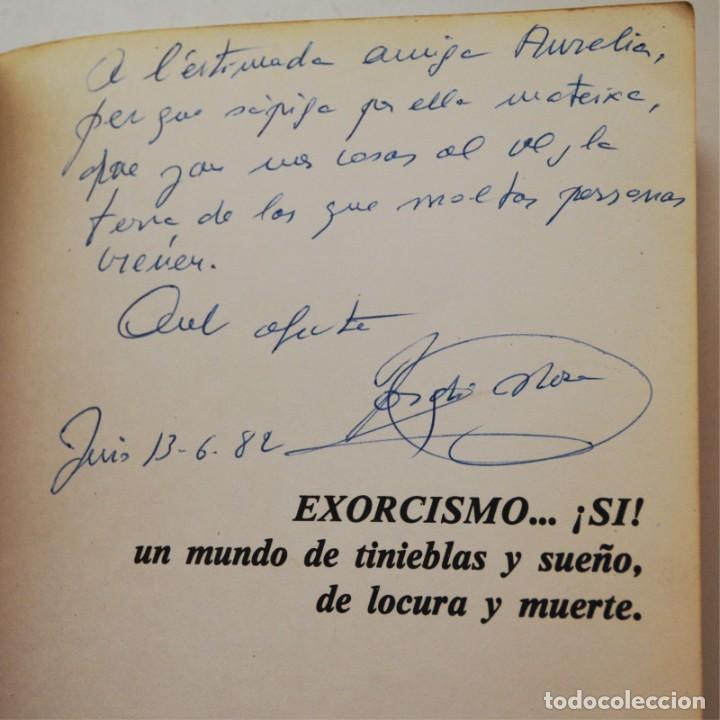 A l'éstimada amiga Aurelia,
per que sápiga per ella mateixa,
que
cosas al
la
terra de las que moltas personas
creuen.
afecte
Juny 13-6-82
EXORCISMO... ¡SI!
un mundo de tinieblas y sueño,
de locura y muerte.
todocoleccion